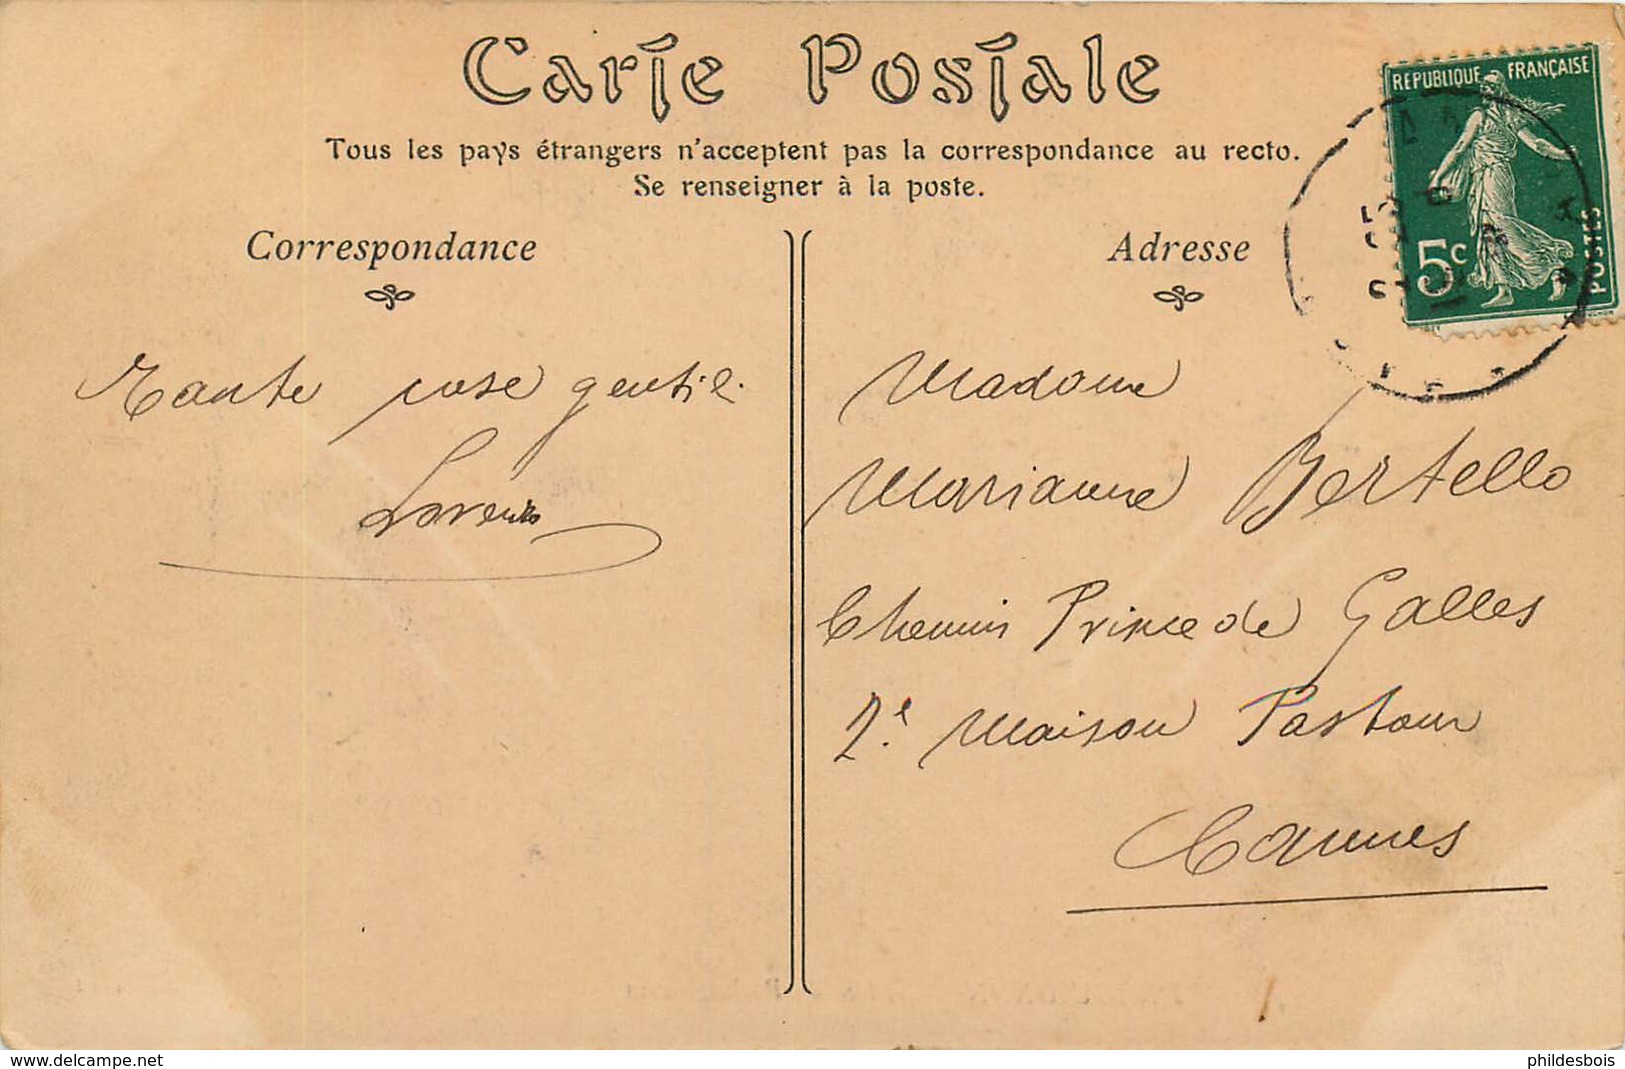 Carte Postale
Tous les pays étrangers n'acceptent pas la correspondance au recto.
Se renseigner à la poste.
Correspondance
Adresse
REPUBLIQUE FRANÇAISE
5c
POSTES
Tante rose gentil.
Lorenzo
Madame
Marianne Bertello
Chemin Prince de Galles
2e Maison Pastour
Cannes
www.delcampe.net
phildesbois